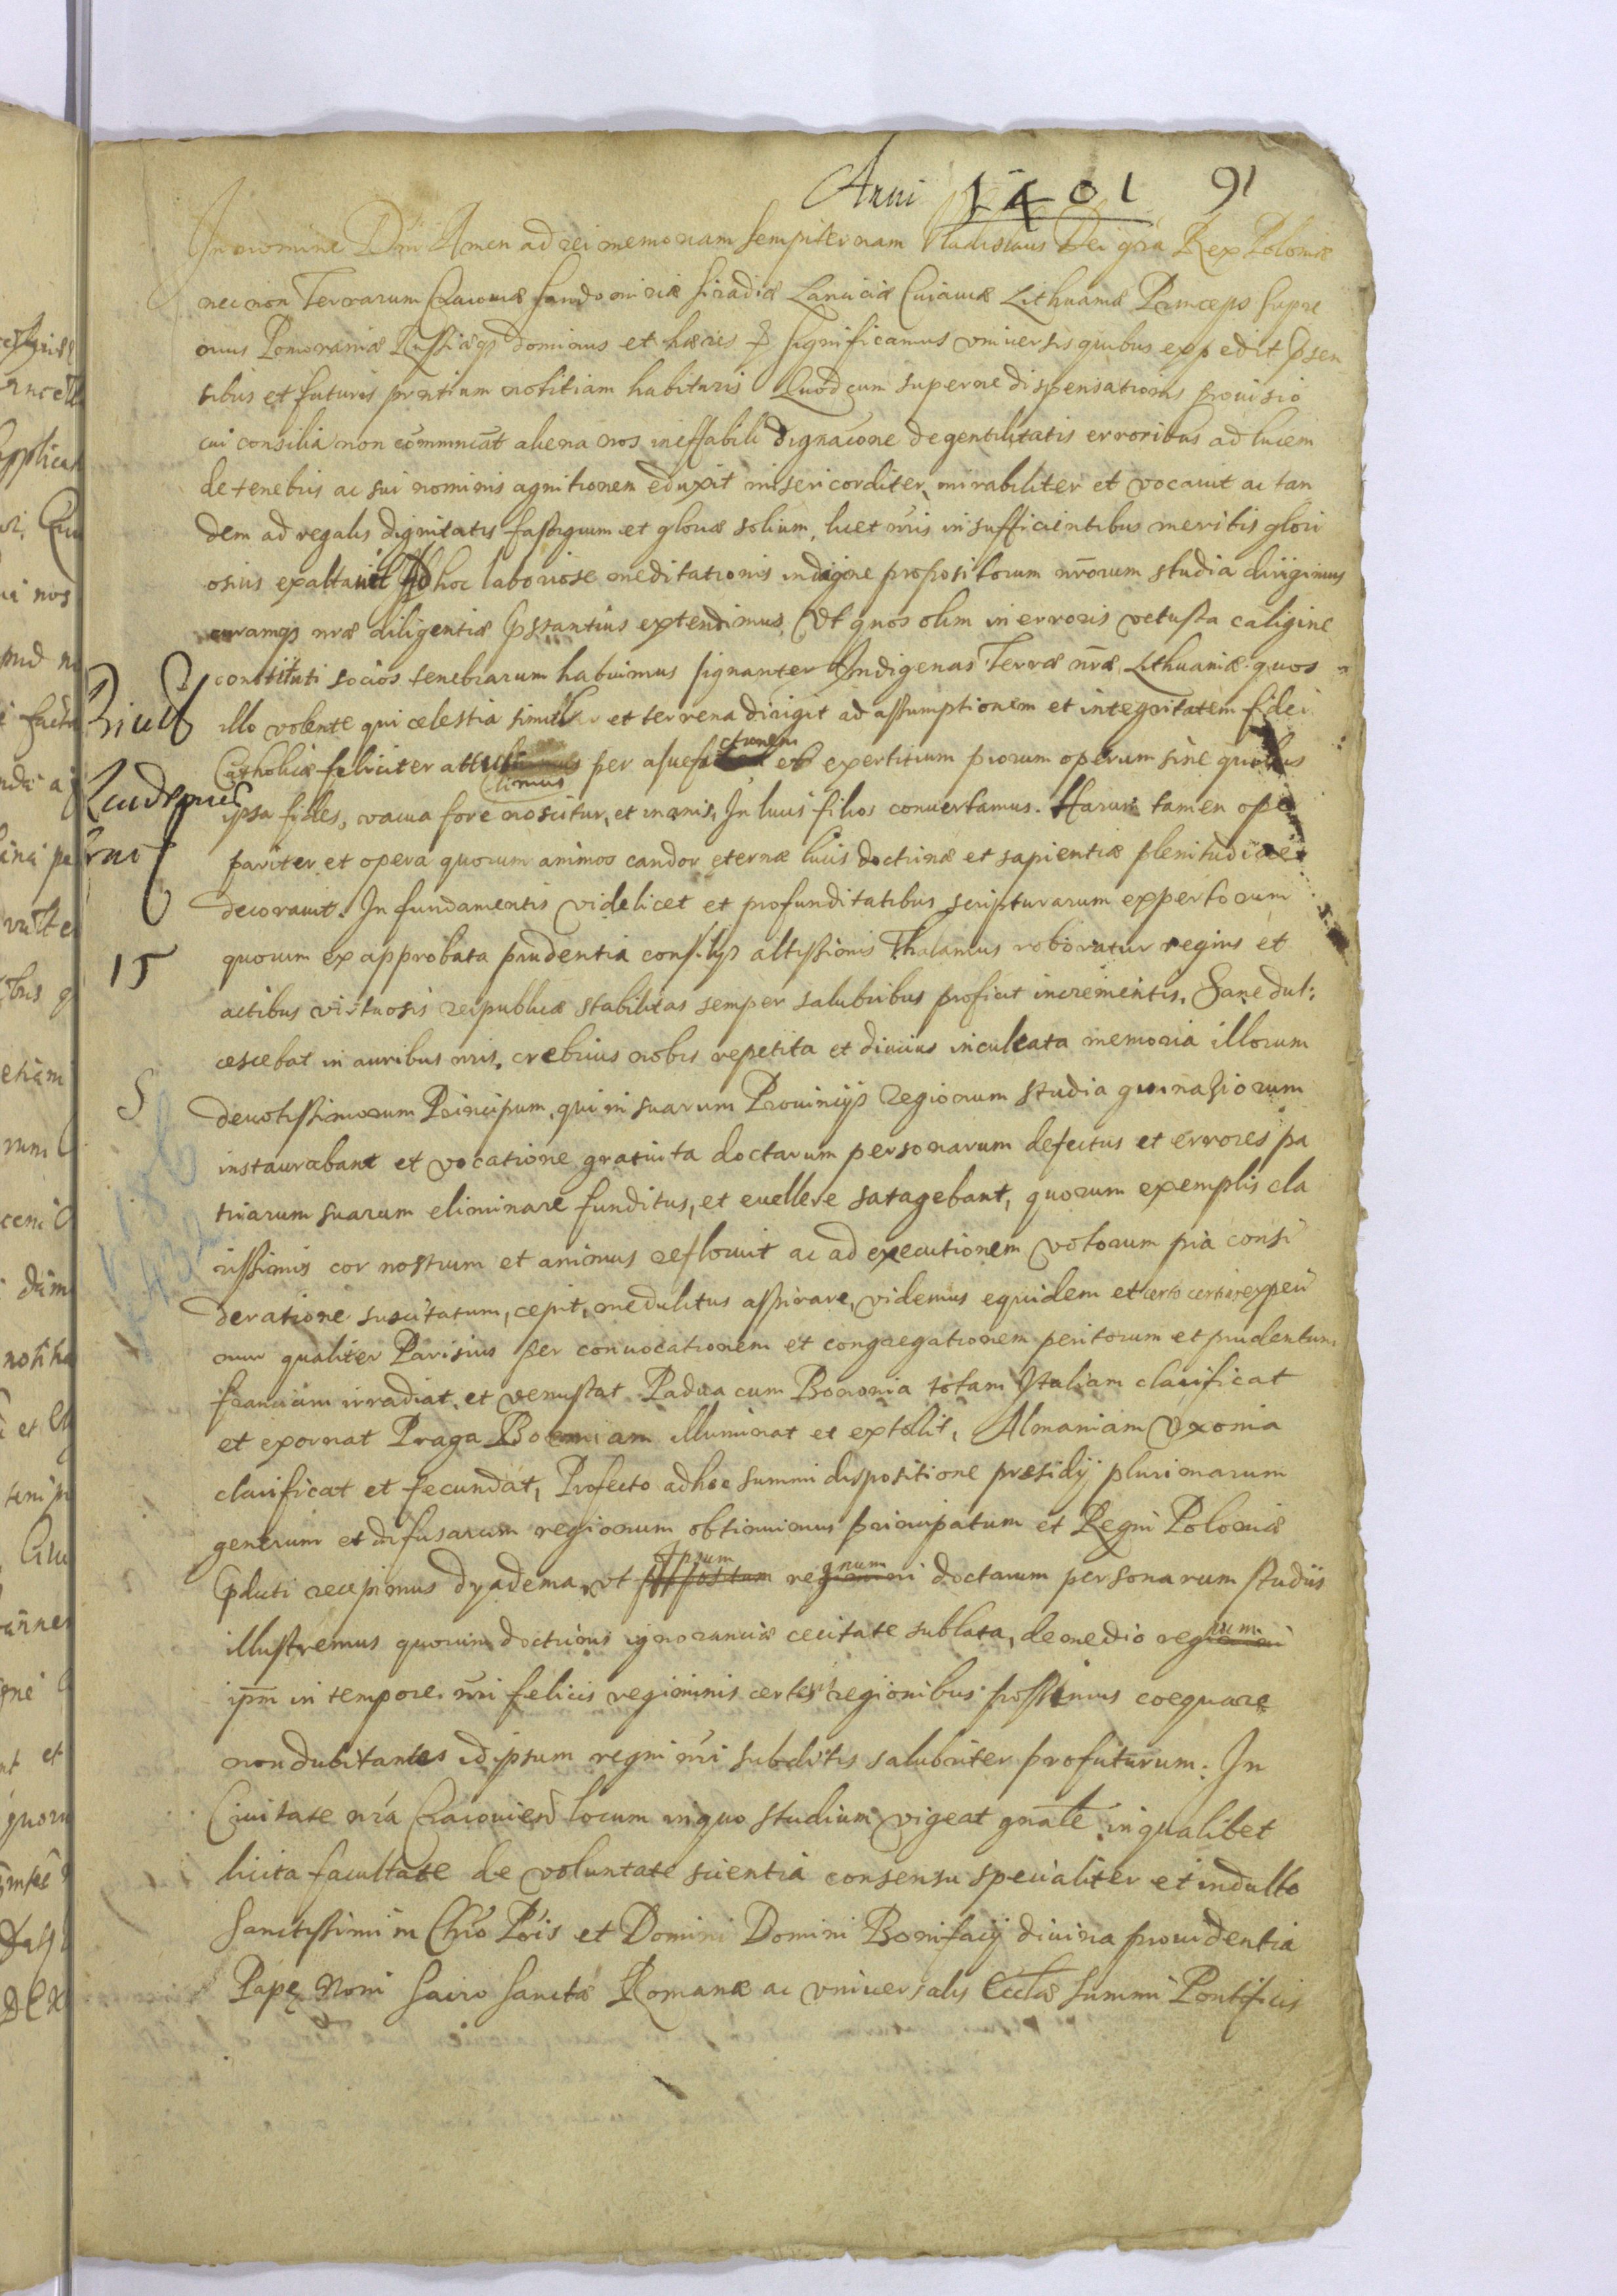 Anni 1401 91
In nomine Dni Amen ad rei memoriam sempiternam Vladislaus Dei gra Rex Poloniæ
nec non Terrarum Cracouiæ Sandomiriæ Siradiæ Lanciciæ Cuiauiæ Lithuaniæ Princeps Supre
mus Pomoraniæ Russiæqz dominus et hæres Significamus vniuersis quibus expedit psen
tibus et futuris prntium notitiam habituris Quod cum superne dispensationis prouisio
cui consilia non communicat aliena nos ineffabili dignacione de gentilitatis erroribus ad lucem
de tenebris ac sui nominis agnitionem eduxit misericorditer, mirabiliter et vocauit ac tan
dem ad regalis dignitatis fastigium et gloriæ solium, licet nris insufficientibus meritis glori
osius exaltauit Ad hoc laboriose meditationis indagine propositorum nrorum studia dirigimus
curamqz nræ diligentiæ pstantius extendimus, Vt quos olim in erroris vetusta caligine
constituti socios tenebrarum habuimus signanter Indigenas Terræ nræ Lithuaniæ quos
illo volente qui celestia simul et terrena dirigit ad assumptionem et integritatem fidei
Catholicæ feliciter attu per asuefa ctionem et exertitium piorum operum sine quibus
limus
ipsa fides, vacua fore noscitur, et inanis, In lucis filios conuertamus. Harum tamen ope
pariter et opera quorum animos candor eternæ lucis doctrinæ et sapientiæ plenitudine
decorauit. In fundamentis videlicet et profunditatibus scripturarum expertorum
15
quorum ex approbata prudentia consilijs altissimis Thalamus roboratur regius et
actibus virtuosis reipublicæ stabilitas semper salubribus proficit incrementis. Sane dul:
cescebat in auribus nris, crebrius nobis repetita et diucius inculcata memoria illorum
deuotissimorum Principum, qui in suarum Prouincijs regionum studia gimnasiorum
instaurabant et vocatione gratuita doctarum personarum defectus et errores pa
triarum suarum eliminare funditus, et euellere satagebant, quorum exemplis cla
rissimis cor nostrum et animus refloruit ac ad executionem votorum pia consi
deratione suscitatum, cepit, medulitus assirare, videmus equidem et certo certius experi
mur qualiter Parisius per conuocationem et congregationem peritorum et prudentum
franciam irradiat, et venustat Padua cum Bononia totam Italiam clarificat
et exornat Praga Boemiam illuminat et extollit, Almaniam Vxonia
clarificat et fecundat, Profecto ad hoc summi dispositione præsidij plurimarum
gentium et difusarum regionum obtinuimus principatum et Regni Poloniæ
Ipsum gnum
pluti recepimus dyadema, vt re doctarum personarum studiis
illustremus quorum doctrinis ignoranciæ cecitate sublata, de medio regnum
ipm in tempore nri felicis regiminis certis regionibus possimus coequare
non dubitantes id ipsum regni nri subditis salubriter profuturum. In
Ciuitate nra Cracouien locum in quo studium vigeat gnale in qualibet
licita facultate de voluntate scientia consensu specialiter et indulto
Sanctissimi in Chro Pris et Domini Domini Bonifacij diuina prouidentia
Pape Noni Sacro Sanctæ Romanæ ac vniuersalis Ecclæ Summi Pontificis